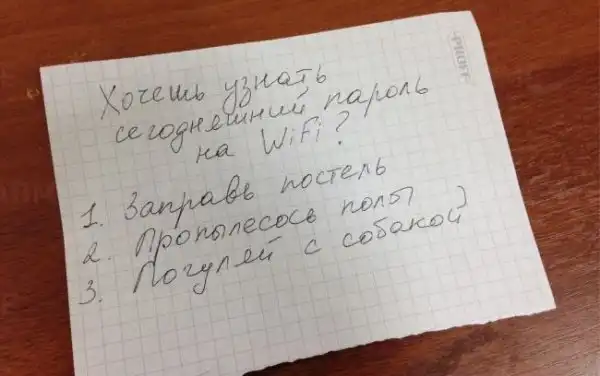 Хочешь узнать
сегодняшний пароль
на WiFi?
1. Заправь постель
2. Пропылесось полы
3. Погуляй с собакой